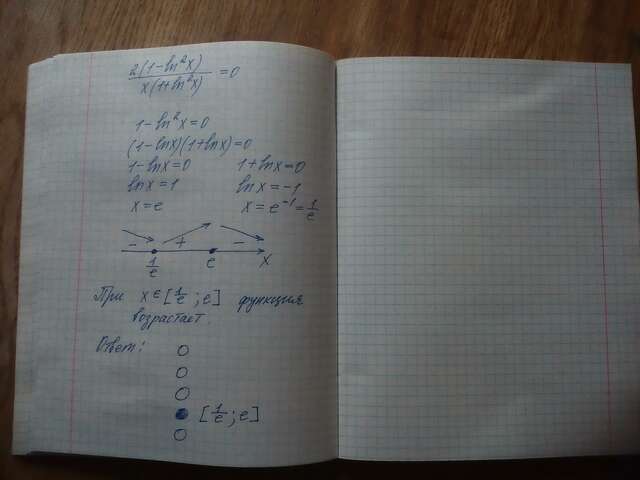 2(1-ln²x)/x(1+ln²x) = 0
1-ln²x=0
(1-lnx)(1+lnx)=0
1-lnx=0 1+lnx=0
lnx=1 lnx=-1
x=e x=e⁻¹=1/e
- + -
1/e e x
При x∈[1/e;e] функция
возрастает.
Ответ:
[1/e;e]